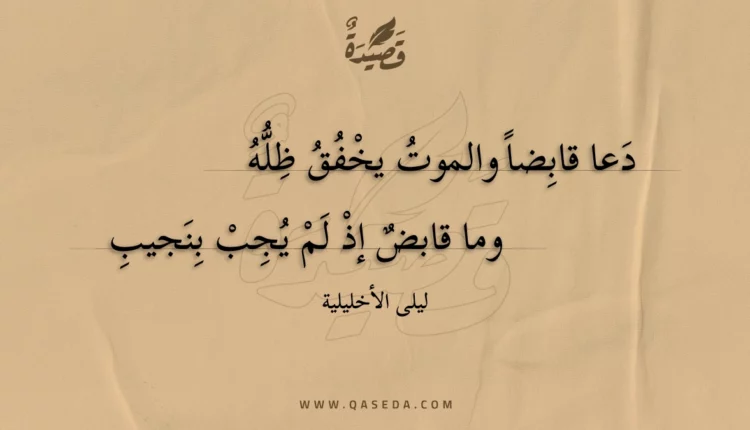 قَصِيدَةٌ
دَعا قابِضاً والموتُ يخْفُقُ ظِلُّهُ
وما قابضٌ إذْ لَمْ يُجِبْ بِنَجيبِ
ليلى الأخليلية
WWW.QASEDA.COM